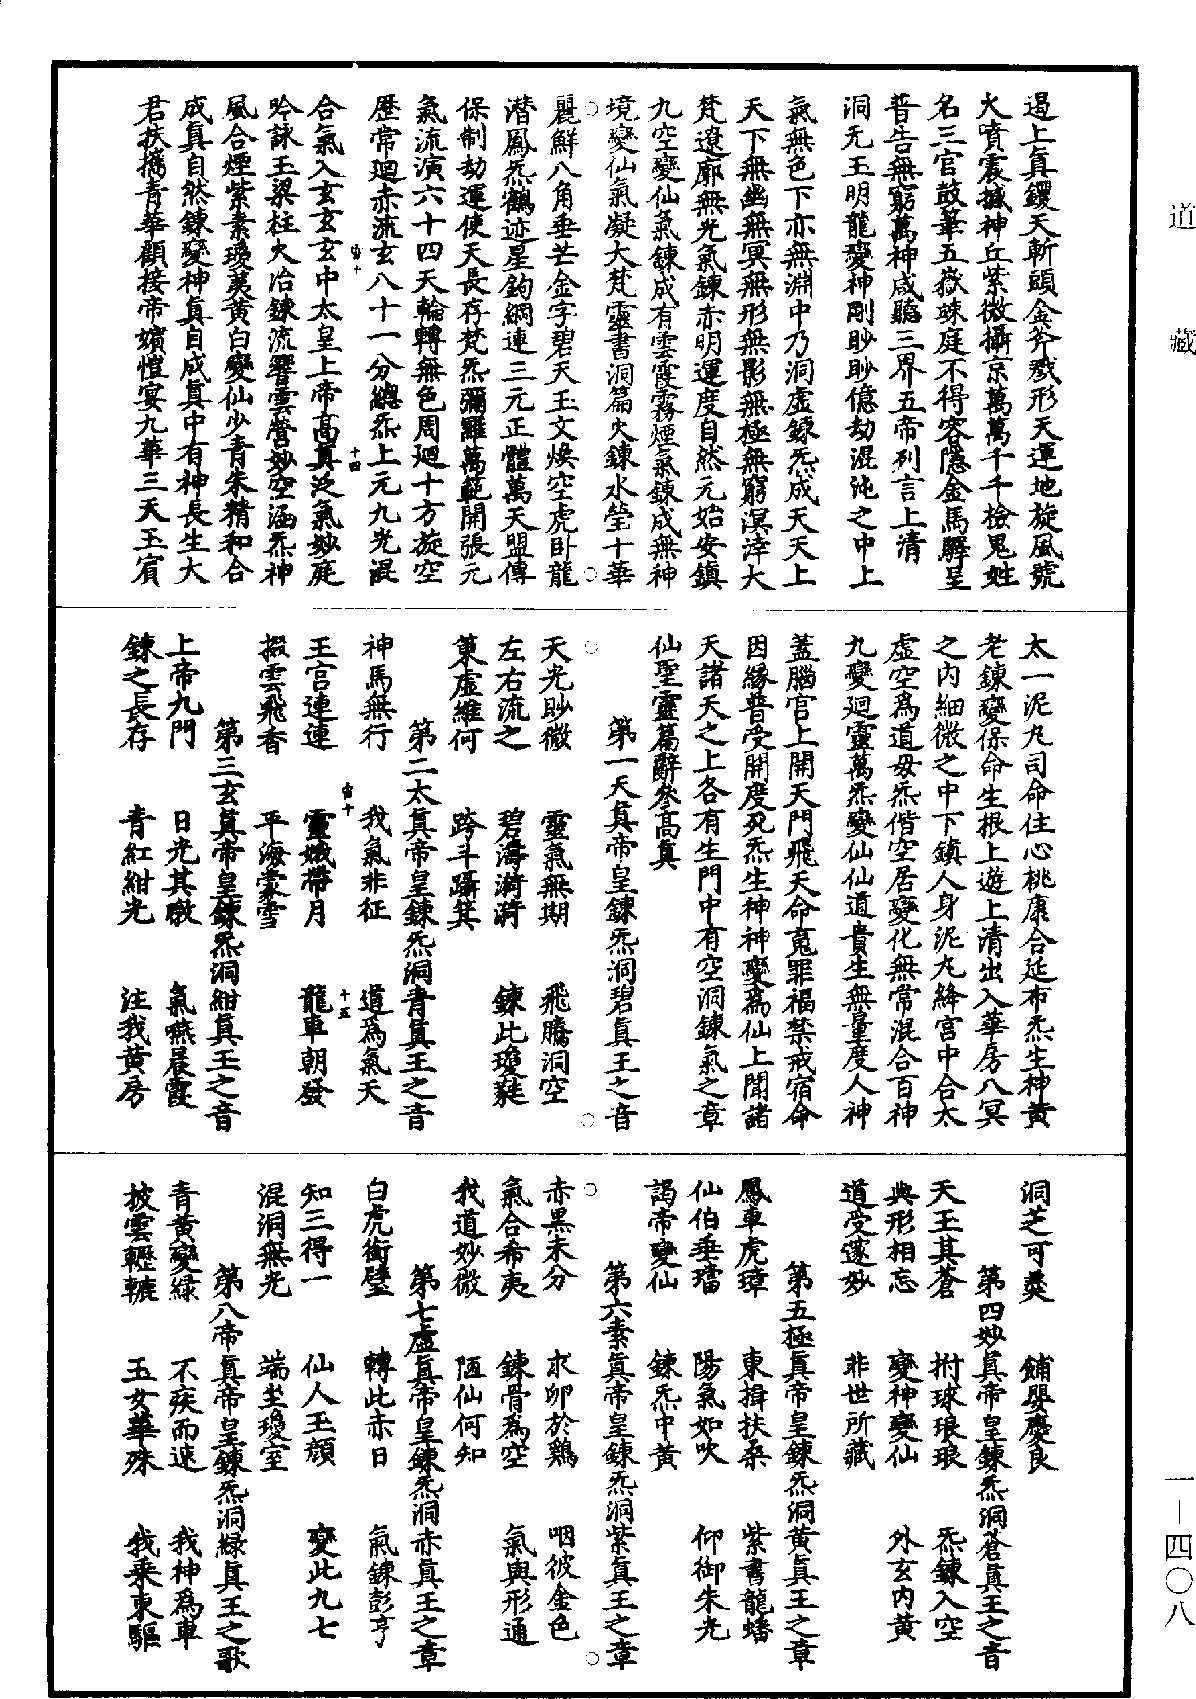 道藏
遏上真鑊天斬頭金斧戮形天運地旋風號
火噴震撼神丘紫微攝京萬萬千千檢鬼姓
名三官鼓華五嶽竦庭不得容隱金馬驛呈
普告無窮萬神咸聽三界五帝列言上清
洞元玉明龍變神剛眇眇億劫混沌之中上
氣無色下亦無淵中乃洞虛鍊炁成天天上
天下無幽無冥無形無影無極無窮溟涬大
梵遼廓無光氣鍊赤明運度自然元始安鎮
九空變仙氣鍊成有雲霞霧煙氣鍊成無神
境變仙氣凝大梵靈書洞篇火鍊水瑩十華
麗鮮八角垂芒金字碧天玉文煥空虎卧龍
潛鳳炁鶴迹星鉤綱連三元正體萬天盟傳
保制劫運使天長存梵炁彌羅萬範開張元
氣流演六十四天輪轉無色周廻十方旋空
歷常廻赤流玄八十一分總炁上元九光混
宙十 十四
合氣入玄玄玄中太皇上帝高真泛氣妙庭
吟詠玉梁柱火冶鍊流響雲營妙空涵炁神
風合煙紫素瓊夷黃白變仙少青朱精和合
成真自然鍊變神真自成真中有神長生大
君扶攜青華顧接帝嬪愷宴九華三天玉賓
太一泥丸司命住心桃康合延布炁生神黃
老鍊變保命生根上遊上清出入華房八冥
之內細微之中下鎮人身泥丸絳宮中合太
虛空爲道毋炁偕空居變化無常混合百神
九變迴靈萬炁變仙仙道貴生無量度人神
蓋腦宮上開天門飛天命寬罪福禁戒宿命
因緣普受開度死炁生神神變爲仙上聞諸
天諸天之上各有生門中有空洞鍊氣之章
仙聖靈篇辭參高真
第一天真帝皇鍊炁洞碧真王之音
天光眇微 靈氣無期 飛騰洞空
左右流之 碧海漪漪 鍊此瓊㽔
策虛維何 跨斗躡箕
第二太真帝皇鍊炁洞青真王之音
神馬無行 我氣非征 道爲氣天
宙十 十五
王宮連連 靈娥帶月 龍車朝發
掇雲飛香 平海蒙雪
第三玄真帝皇鍊炁洞紺真王之音
上帝九門 日光其暾 氣嚥晨霞
鍊之長存 青紅紺光 注我黃房
洞芝可羹 餔嬰慶良
第四妙真帝皇鍊炁洞蒼真王之音
天王其蒼 拊球琅琅 炁鍊入空
典形相忘 變神變仙 外玄內黃
道受邃妙 非世所藏
第五極真帝皇鍊炁洞黃真王之章
鳳車虎璋 東揖扶桑 紫書龍蟠
仙伯垂璫 陽氣如吹 仰御朱光
謁帝變仙 鍊炁中黃
第六素真帝皇鍊炁洞紫真王之章
赤黑未分 求卵於鷄 咽彼金色
氣合希夷 鍊骨爲空 氣與形通
我道妙微 陋仙何知
第七虛真帝皇鍊炁洞赤真王之章
白虎銜璧 轉此赤日 氣鍊彭亨
知三得一 仙人玉顏 變此九七
混洞無光 端坐瓊室
第八帝真帝皇鍊炁洞綠真王之歌
青黃變綠 不疾而速 我神爲車
披雲轣轆 玉女華殊 我乘東驅
一—四〇八